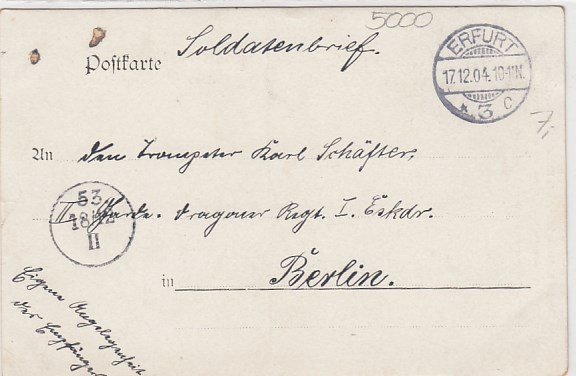 5000
Soldatenbrief.
Postkarte
ERFURT
17.12.04.10-11N.
* 3 c
7,
An den Trompeter Karl Schäfter,
II Garde-Dragoner Regt. I. Eskdr.
53
18/12
II
in Berlin.
Eigene Angelegenheit
des Empfängers